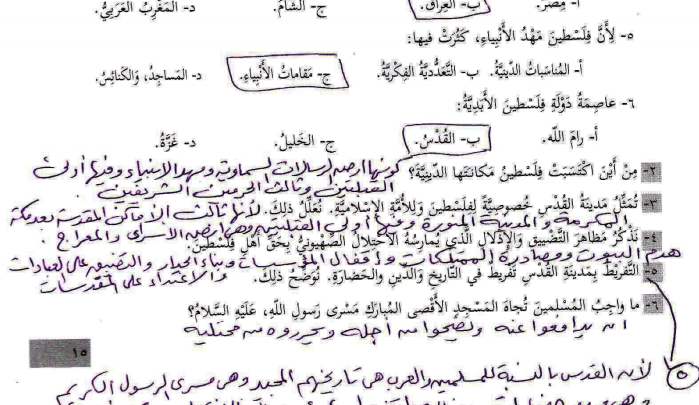 أ- مِصْرُ. ب- العِراقُ. ج- الشّامُ. د- المَغْرِبُ العَرَبِيُّ.
٥- لِأَنَّ فِلَسْطينَ مَهْدُ الأَنْبِياءِ، كَثُرَتْ فيها:
أ- المُناسَباتُ الدّينِيَّةُ. ب- التَّعَدُّدِيَّةُ الفِكْرِيَّةُ. ج- مَقاماتُ الأَنْبِياءِ. د- المَساجِدُ، وَالكَنائِسُ.
٦- عاصِمَةُ دَوْلَةِ فِلَسْطينَ الأَبَدِيَّةُ:
أ- رامَ اللّه. ب- القُدْسُ. ج- الخَليلُ. د- غَزَّةُ.
٢- مِنْ أَيْنَ اكْتَسَبَتْ فِلَسْطينُ مَكانَتَها الدّينِيَّةَ؟ كونها ارض لرسالات السماوية ومهد الانبياء وفيها أولى
القبلتين وثالث الحرمين الشريفين
٣- تُمَثِّلُ مَدينَةُ القُدْسِ خُصوصِيَّةً لِفِلَسْطينَ وَلِلأُمَّةِ الإِسْلامِيَّةِ. نُعَلِّلُ ذلِكَ. لأنها ثالث الأماكن المقدسة بعد مكة
المكرمة والمدينة المنورة وفيها أولى القبلتين وهي ارض الاسراء والمعراج.
٤- نَذْكُرُ مَظاهِرَ التَّضْييقِ وَالإِذْلالِ الَّذي يُمارِسُهُ الاحْتِلالُ الصِّهْيونِيُّ بِحَقِّ أَهْلِ فِلَسْطينَ.
هدم البيوت ومصادرة الممتلكات واقفال المؤسسات وبناء الجدار والتضييق على العبادات
٥- التَّفْريطُ بِمَدينَةِ القُدْسِ تَفْريطٌ في التّاريخِ وَالدّينِ والحَضارَةِ. نُوَضِّحُ ذلِكَ. والاعتداء على المقدسات
٦- ما واجِبُ المُسْلِمينَ تُجاهَ المَسْجِدِ الأَقْصى المُبارَكِ مَسْرى رَسولِ اللّهِ، عَلَيْهِ السَّلامُ؟
ان يدافعوا عنه ويضحوا من أجله ويحرروه من محتليه
١٥
٥ لأن القدس بالنسبة للمسلمين والعرب هي تاريخهم المجيد وهي مسرى الرسول الكريم